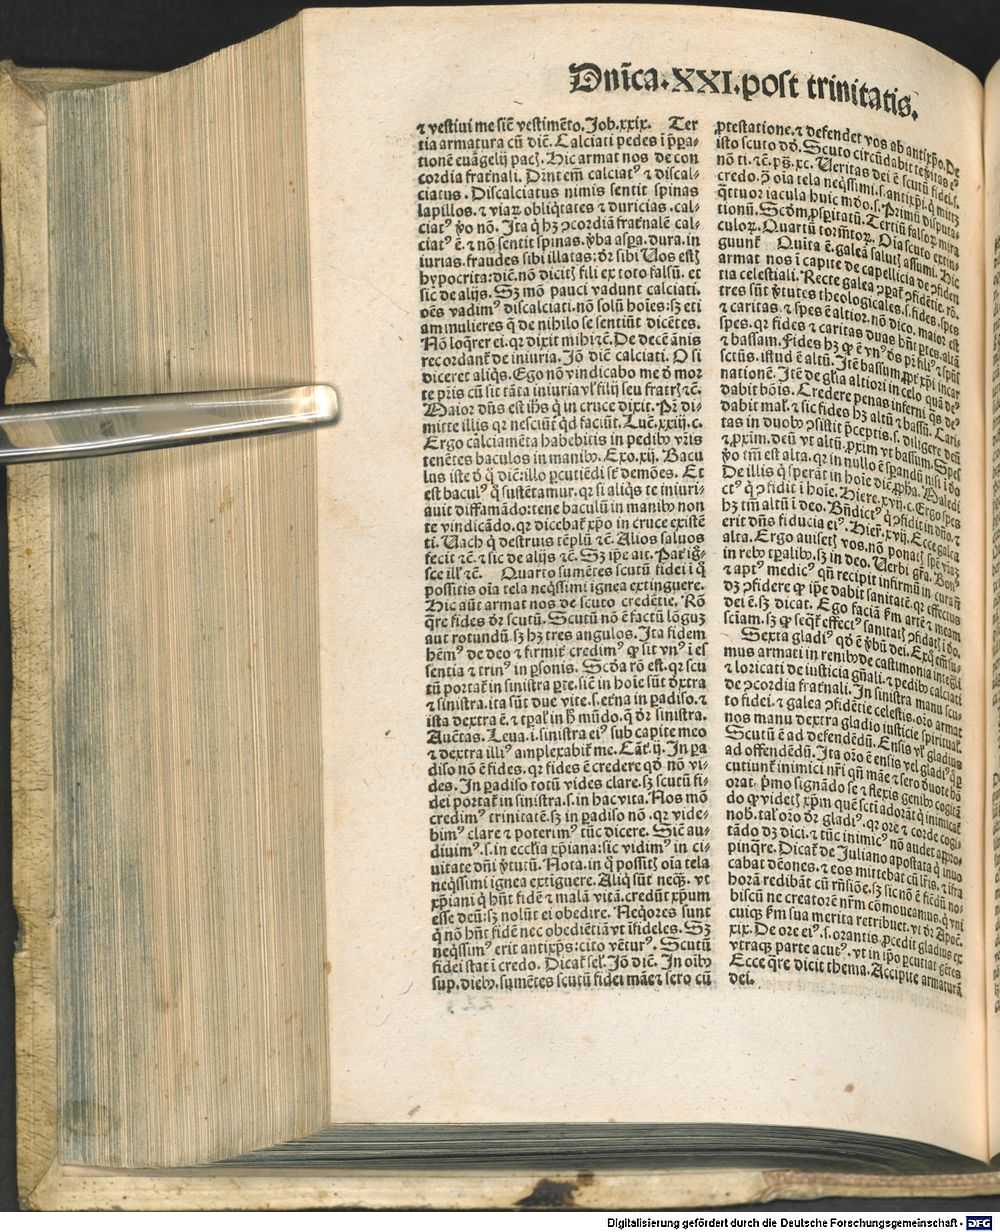 Dnīca.XXI.post trinitatis.
⁊ vestiui me siē vestimēto. Job.xxix. Ter
tia armatura cū diē. Calciati pedes ī p̄pa-
tionē euāgelij paꝯ. Hic armat nos de con
cordia frat̄nali. Dr̄nt em̄ calciatꝰ ⁊ discal-
ciatus. Discalciatus nimis sentit spinas
lapillos. ⁊ viaꝝ obliq̄tates ⁊ duricias. cal-
ciatꝰ v̄o nō. Ita q̄ hꝫ ꝯcordiā frat̄nalē cal-
ciatꝰ ē. ⁊ nō sentit spinas. v̄ba aspa. dura. in
iurias. fraudes sibi illatas: dr̄ sibi Uos estꝭ
hypocrita: diē. nō dicitꝭ fili ex toto falsū. et
sic de alijs. Sꝫ mō pauci vadunt calciati.
oēs vadimꝰ discalciati. nō solū hoīes: sꝫ eti
am mulieres q̄ de nihilo se sentiūt dicētes.
Nō loq̄rer ei. qꝛ dixit mihi ⁊c̄. De decē ānis
recordant̄ de iniuria. Jō diē calciati. O si
diceret aliq̄s. Ego nō vindicabo me d̄ mor
te pr̄is cū sit tāta iniuria vl̄ filij seu fratrꝭ ⁊c̄.
Maior dn̄s est ih̄s q̄ in cruce dixit. Pr̄ di-
mitte illis qꝛ nesciūt q̇d faciūt. Luc̄. xxiij. c.
Ergo calciamēta habebitis in pedibꝰ vr̄is
tenētes baculos in manibꝰ. Exo. xij. Bacu
lus iste d̄ q̄ diē: illo ꝑcutiēdi st̄ demōes. Et
est baculꝰ q̄ sustētamur. qꝛ si aliq̄s te iniuri-
auit diffamādo: tene baculū in manibꝰ non
te vindicādo. qꝛ dicebat̄ xp̄o in cruce existē
ti. Uach q̄ destruis tēplū ⁊c̄. Alios saluos
fecit ⁊c̄. ⁊ sic de alijs ⁊c̄. Sꝫ ip̄e ait. Pat̄ iḡ-
sce ill̄ ⁊c̄. Quarto sumētes scutū fidei ī q̄
possitis oīa tela neq̄ssimi ignea extinguere.
Hic aūt armat nos de scuto credētie. Rō
q̄re fides dr̄ scutū. Scutū nō ē factū lōguꝫ
aut rotundū. sꝫ hꝫ tres angulos. Ita fidem
hēmꝰ de deo ⁊ firmit̄ credimꝰ ꝙ sit vnꝰ ī es
sentia ⁊ trinꝰ in ꝑsonis. Scd̄a rō est. qꝛ scu
tū portat̄ in sinistra ꝑte. siē in hoīe sūt dext̄ra
⁊ sinistra. ita sūt due vite. s. et̄na in ꝑadiso. ⁊
ista dextra ē. ⁊ tꝑal̄ in h̄ mūdo. q̄ dr̄ sinistra.
Auētas. Leua. i. sinistra eiꝰ sub capite meo
⁊ dextra illiꝰ amplexabit̄ me. Cāt̄. ij. In ꝑa
diso nō ē fides. qꝛ fides ē credere qd̄ nō vi-
des. In ꝑadiso totū vides clare. sꝫ scutū fi-
dei portat̄ in sinistra. s. in hac vita. Nos mō
credimꝰ trinitatē. sꝫ in ꝑadiso nō. qꝛ vide-
bimꝰ clare ⁊ poterimꝰ tūc dicere. Siē au-
diuimꝰ. s. in ecc̄lia xp̄iana: sic vidimꝰ in ci-
uitate dn̄i v̄tutū. Nota. in q̄ possitꝭ oīa tela
neq̄ssimi ignea extīguere. Aliq̄ sūt neqꝫ. vt
xp̄iani q̄ hn̄t fidē ⁊ malā vitā. credūt xp̄um
esse deū: sꝫ nolūt ei obedire. Neq̄ores sunt
q̄ nō hn̄t fidē nec obediētiā vt īfideles. Sꝫ
neq̄ssimꝰ erit antixp̄s: cito vēturꝰ. Scutū
fidei stat ī credo. Dicat̄ sel̄. Jō diē. In oībꝰ
sup. diebꝰ. sumētes scutū fidei māe ⁊ sero cū
ꝓtestatione. ⁊ defendet vos ab antixp̄o. De
isto scuto dd̄. Scuto circūdabit te v̄itas eiꝰ
nō ti. ⁊c̄. pꝫ. xc. Ueritas dei ē scutū fidei. s.
credo. ꝯ̄ oīa tela neq̄ssimi. s. antixp̄i. q̄ mittꝫ
q̄ttuor iacula huic mōo. s. Primū disputa-
tionū. Scd̄m ꝓsꝑitatū. Tertiū falsoꝝ mira
culoꝝ. Quartū torm̄toꝝ. Oīa scuto extin-
guunt̄. Quīta ē. galeā salutꝭ assumi. Hic
armat nos ī capite de capellicia de ꝯfiden
tia celestiali. Recte galea ꝯꝑat̄ ꝯfidētie. rō.
tres sūt v̄tutes theologicales. s. fides. spes
⁊ caritas. ⁊ spes ē altior. nō dico. maior est
spes. qꝛ fides ⁊ caritas duas hn̄t ꝑtes. altā
⁊ bassam. Fides hꝫ ꝙ ē vnꝰ dꝰ pr̄ filiꝰ ⁊ sp̄us
sctūs. istud ē altū. Itē bassum. ꝓpt̄ xp̄i incar
nationē. Itē de gl̄ia altiori in celo quā deꝰ
dabit bōis. Credere penas inferni q̄s deꝰ
dabit mal̄. ⁊ sic fides hꝫ altū ⁊ bassū. Cari-
tas in duobꝰ ꝯsistit p̄ceptis. s. diligere deū
⁊ ꝓxim. deū vt altū. ꝓxim vt bassum. Spes
v̄o tm̄ est alta. qꝛ in nullo ē spandū nisi ī do
De illis q̄ sperāt in hoīe diē ꝓpha. Maledi
ctꝰ q̄ ꝯfidit ī hoīe. Hiere. xvij. c. Ergo spes
hꝫ tm̄ altū ī deo. Bn̄dictꝰ q̄ ꝯfidit in dn̄o. ⁊
erit dn̄s fiducia eiꝰ. Hier̄. xvij. Ecce galea
alta. Ergo auisetꝭ vos. nō ponatꝭ spē vr̄az
in rebꝰ tꝑalibꝰ. sꝫ in deo. Uerbi gr̄a. Bonꝰ
⁊ aptꝰ medicꝰ qn̄ recipit infirmū in curam̄
dꝫ ꝯfidere ꝙ ip̄e dabit sanitatē. qꝛ effectus
dei ē. sꝫ dicat. Ego faciā ẜm artē ⁊ meam
sciam. sꝫ ꝙ seq̄t̄ effectꝰ sanitatꝭ ꝯfidatꝭ ī do.
Sexta gladiꝰ qd̄ ē v̄bū dei. Exq̄ em̄ su-
mus armati in renibꝰ de castimonia inteḡli
⁊ loricati de iusticia gn̄ali. ⁊ pedibꝰ calciati
de ꝯcordia frat̄nali. In sinistra manu scu-
to fidei. ⁊ galea ꝯfidētie celestis. oro armat
nos manu dextra gladio iusticie spiritual̄.
Scutū ē ad defendēdū. Ensis vl̄ gladius
ad offendēdū. Ita oro ē ensis vel gladiꝰ q̄ ꝑ
cutiunt̄ inimici nr̄i qn̄ māe ⁊ sero deuote hō
orat. p̄mo signādo se ⁊ flexis genibꝰ cogitā
do ꝙ videtꝭ xp̄m quē scti adorāt q̄ inimicat̄
nob̄. tal̄ oro dr̄ gladiꝰ. qꝛ ore ⁊ corde cogi-
tādo dꝫ dici. ⁊ tūc inimicꝰ nō audet appro-
pinq̄re. Dicat̄ de Juliano apostata q̄ inuo
cabat dēones. ⁊ eos mittebat cū lr̄is. ⁊ īfra
horā redibāt cū rn̄siōe. sꝫ sic nō ē fiēdū no-
biscū ne creatorē nr̄m cōmoueamus. q̄ vni
cuiqꝫ ẜm sua merita retribuet. vt dr̄ Apoc̄.
xix. De ore eiꝰ. s. orantis ꝓcedit gladius ex
vtraqꝫ parte acutꝰ. vt in ip̄o ꝑcutiat gētes
Ecce q̄re dicit thema. Accipite armaturā
dei.
Digitalisierung gefördert durch die Deutsche Forschungsgemeinschaft - DFG